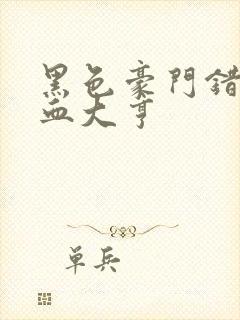 黑色豪門錯
血大亨
单兵